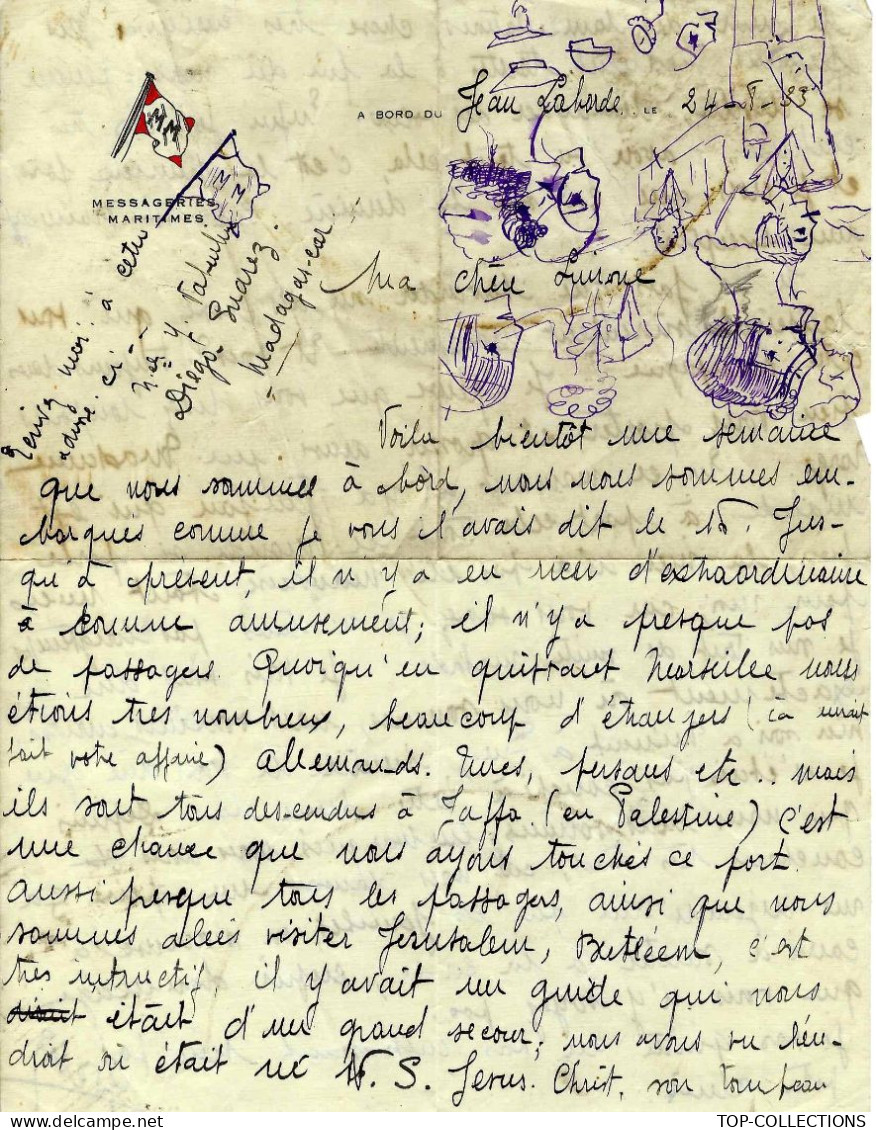 A BORD DU Jean Laborde LE 24-8-33
MM
MM
MESSAGERIES
MARITIMES
Ecrivez moi à cette
adresse ci-
Y.
Diégo Suarez.
Madagas-car
Ma chère
Voila bientôt une semaine
que nous sommes à bord, nous nous sommes em-
barqués comme je vous l'avais dit le 18. Jus-
qu'à présent, il n'y a eu rien d'extraordinaire
à comme amusement; il n'y a presque pas
de passagers. Quoiqu'en quittant Marseille nous
étions très nombreux, beaucoup d'étrangers (ça aurait
fait votre affaire) Allemands. Turcs, persans etc.. mais
ils sont tous des-cendus à Jaffa (en Palestine) c'est
une chance que nous ayons touchés ce port
aussi presque tous les passagers, ainsi que nous
sommes alées visiter Jerusalem, Betléem, c'est
très intructif, il y avait un guide qui nous
était d'un grand secour; nous avons vu l'en-
droit où était né N. S. Jesus. Christ, son tombeau
TOP-COLLECTIONS